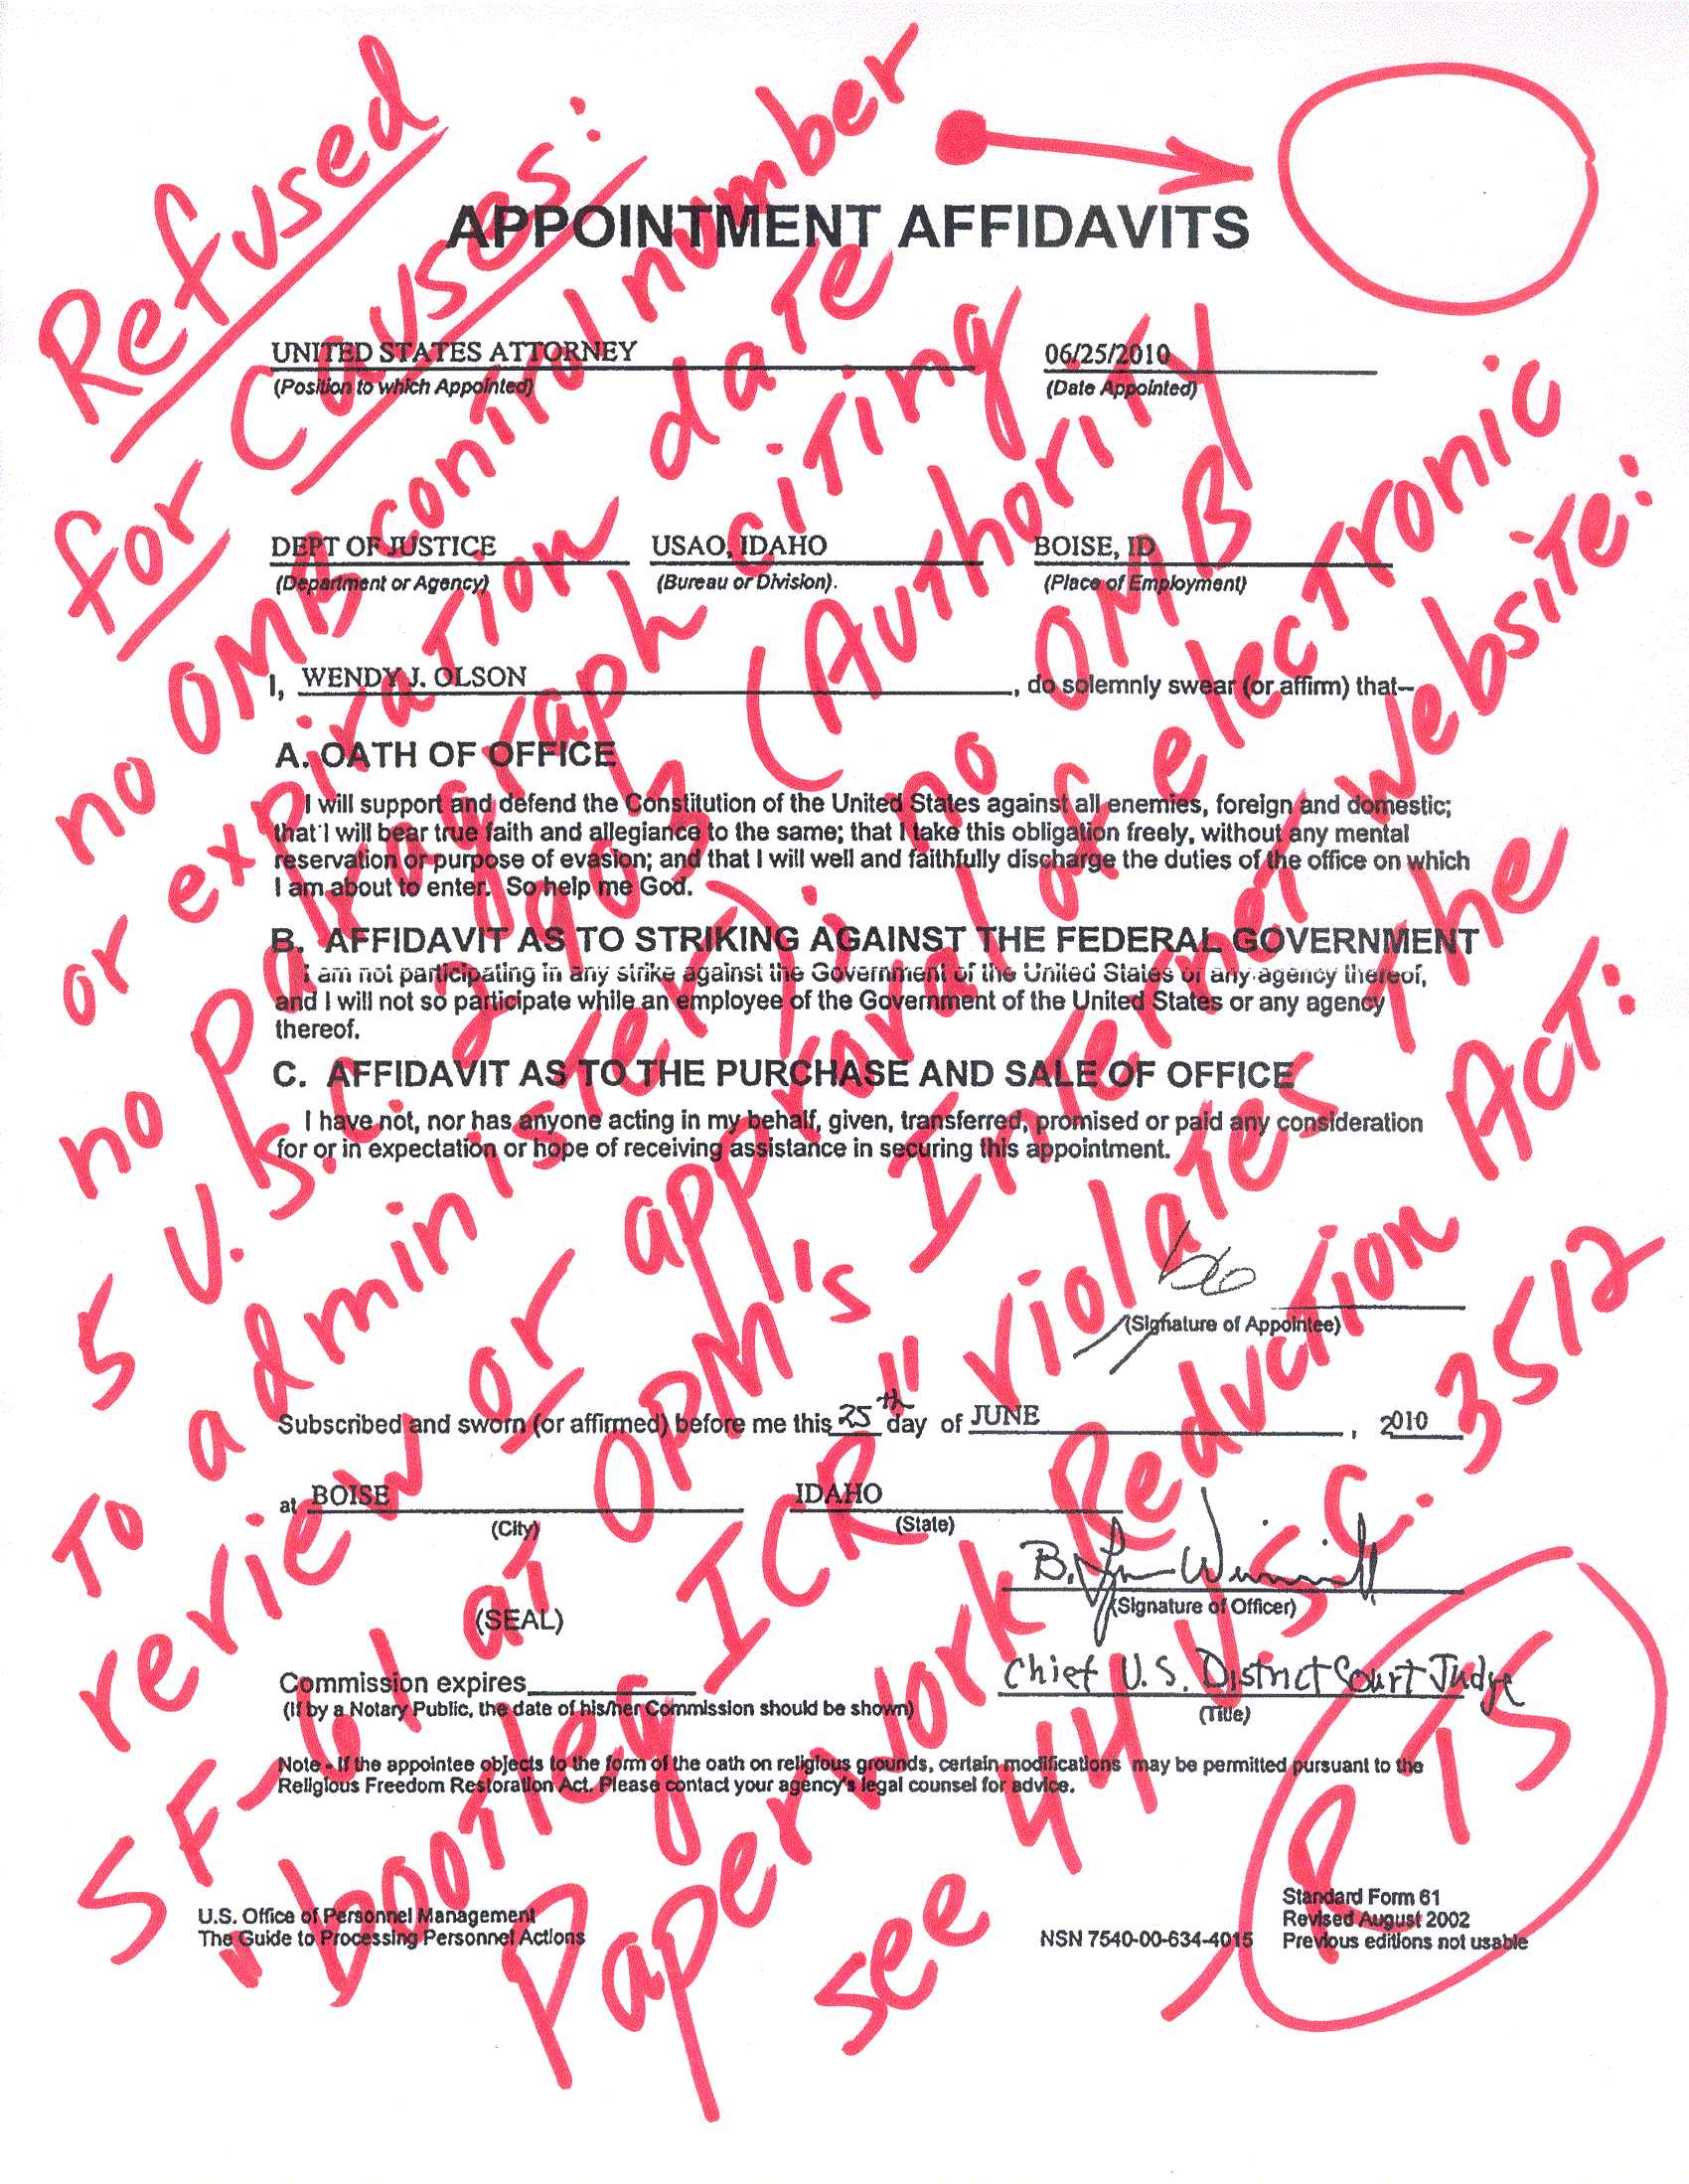 Refused
for Causes:
no OMB control number
or expiration date
no Paragraph citing
5 U.S.C. 2903 (Authority
To administer); no OMB
review or approval of electronic
SF-61 at OPM's Internet website:
"bootleg ICR" violates the
Paperwork Reduction Act:
see 44 U.S.C. 3512
RTS
APPOINTMENT AFFIDAVITS
UNITED STATES ATTORNEY 06/25/2010
(Position to which Appointed) (Date Appointed)
DEPT OF JUSTICE USAO, IDAHO BOISE, ID
(Department or Agency) (Bureau or Division). (Place of Employment)
I, WENDY J. OLSON, do solemnly swear (or affirm) that--
A. OATH OF OFFICE
I will support and defend the Constitution of the United States against all enemies, foreign and domestic;
that I will bear true faith and allegiance to the same; that I take this obligation freely, without any mental
reservation or purpose of evasion; and that I will well and faithfully discharge the duties of the office on which
I am about to enter. So help me God.
B. AFFIDAVIT AS TO STRIKING AGAINST THE FEDERAL GOVERNMENT
I am not participating in any strike against the Government of the United States or any agency thereof,
and I will not so participate while an employee of the Government of the United States or any agency
thereof.
C. AFFIDAVIT AS TO THE PURCHASE AND SALE OF OFFICE
I have not, nor has anyone acting in my behalf, given, transferred, promised or paid any consideration
for or in expectation or hope of receiving assistance in securing this appointment.
(Signature of Appointee)
Subscribed and sworn (or affirmed) before me this 25th day of JUNE, 2010
at BOISE IDAHO
(City) (State)
B. Lynn Winmill
(Signature of Officer)
(SEAL)
Chief U.S. District Court Judge
Commission expires
(If by a Notary Public, the date of his/her Commission should be shown) (Title)
Note - If the appointee objects to the form of the oath on religious grounds, certain modifications may be permitted pursuant to the
Religious Freedom Restoration Act. Please contact your agency's legal counsel for advice.
U.S. Office of Personnel Management
The Guide to Processing Personnel Actions
NSN 7540-00-634-4015
Standard Form 61
Revised August 2002
Previous editions not usable